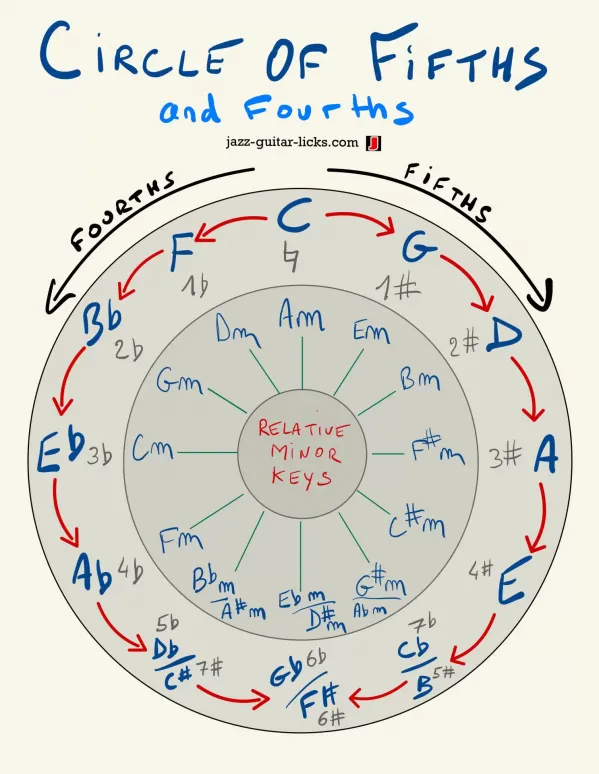 CIRCLE OF FIFTHS
and Fourths
jazz-guitar-licks.com J
FOURTHS
FIFTHS
C
♮
G
1#
D
2#
A
3#
E
4#
Cb/B
7b
5#
Gb/F#
6b
6#
Db/C#
5b
7#
Ab
4b
Eb
3b
Bb
2b
F
1b
Am
Em
Bm
F#m
C#m
G#m/Abm
Ebm/D#m
Bbm/A#m
Fm
Cm
Gm
Dm
RELATIVE
MINOR
KEYS